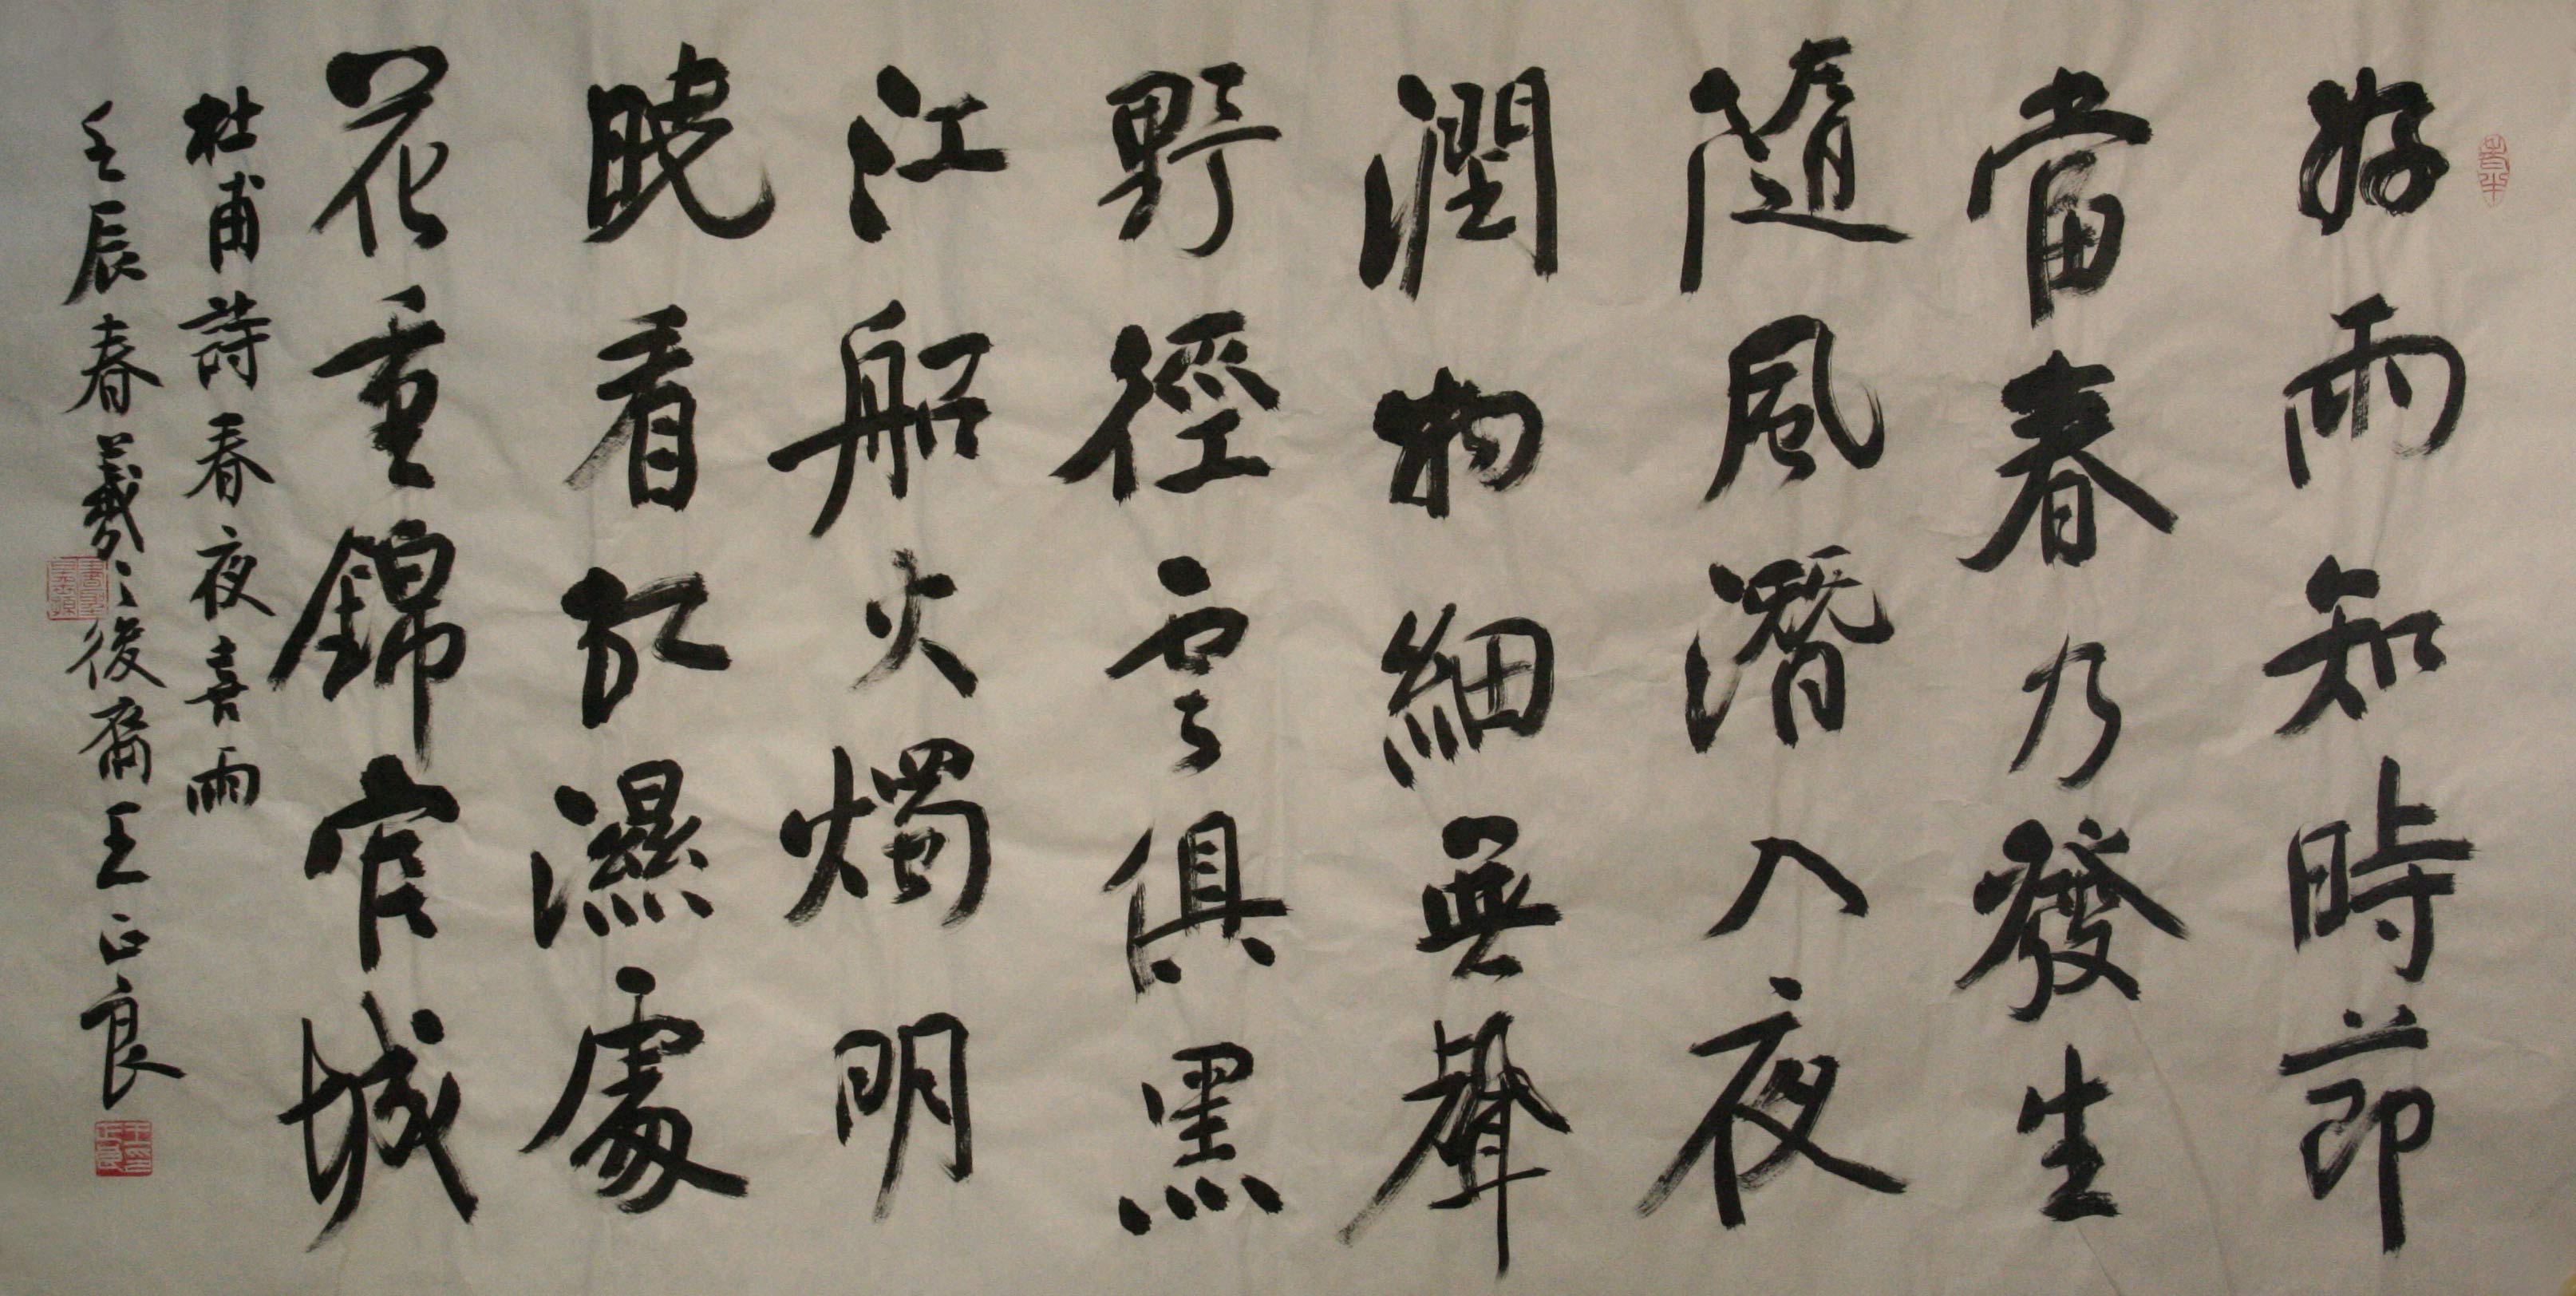 好雨知時節
當春乃發生
隨風潛入夜
潤物細無聲
野徑雲俱黑
江船火燭明
曉看紅濕處
花重錦官城
杜甫詩春夜喜雨
壬辰春羲之後裔王正良